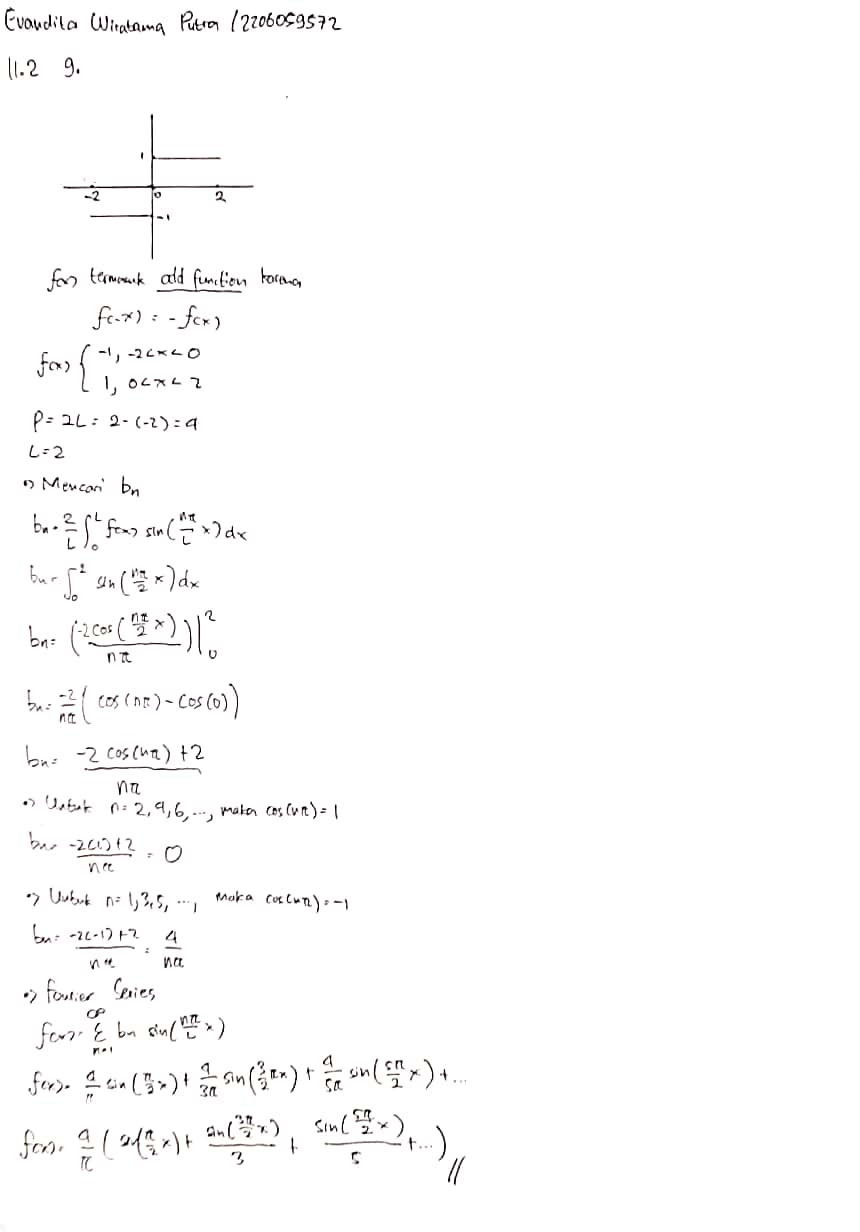 Evandita Wiratama Putra / 2206059572
11.2 9.
1
-2 0 2
-1
f(x) termasuk odd function karena
f(-x) = -f(x)
f(x) { -1, -2<x<0
1, 0<x<2
P = 2L = 2-(-2) = 4
L = 2
•) Mencari bn
bn = 2/L ∫₀ᴸ f(x) sin(nπ/L x) dx
bn = ∫₀² sin(nπ/2 x) dx
bn = (-2cos(nπ/2 x)/nπ)|₀²
bn = -2/nπ (cos(nπ) - cos(0))
bn = (-2 cos(nπ) + 2)/nπ
•) Untuk n = 2,4,6,..., maka cos(nπ) = 1
bn = (-2(1)+2)/nπ = 0
•) Untuk n = 1,3,5, ..., maka cos(nπ) = -1
bn = (-2(-1)+2)/nπ = 4/nπ
•) Fourier Series
f(x) = Σ_{n=1}^∞ bn sin(nπ/L x)
f(x) = 4/π sin(π/2 x) + 4/3π sin(3/2 πx) + 4/5π sin(5π/2 x) + ...
f(x) = 4/π (sin(π/2 x) + sin(3π/2 x)/3 + sin(5π/2 x)/5 + ...) //